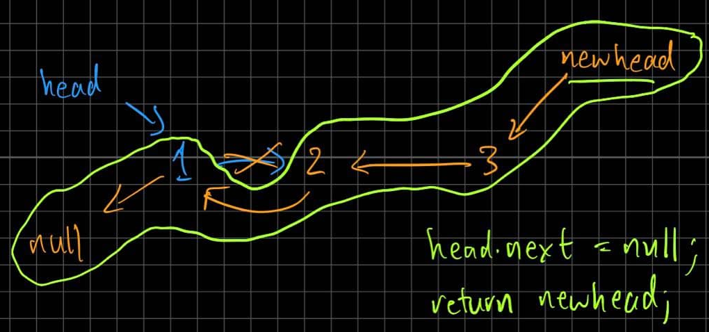 newhead
head
1 2 3
null
head.next = null;
return newhead;